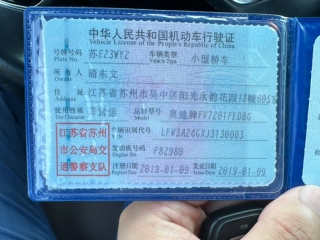 中华人民共和国机动车行驶证
Vehicle License of the People's Republic of China
号牌号码 苏E23WYZ 车辆类型 小型轿车
Plate No. Vehicle Type
所有人
Owner
住址 江苏省苏州市吴中区阳光水韵花园18幢605室
Address
使用性质 非营运 品牌型号 奥迪牌FV7201FEDBG
Use Character Model
江苏省苏州
市公安局交
通警察支队
车辆识别代号 LFV3AZ4GXJ3130003
VIN
发动机号码 P82980
Engine No.
注册日期 2019-01-09 发证日期 2019-01-09
Register Date Issue Date